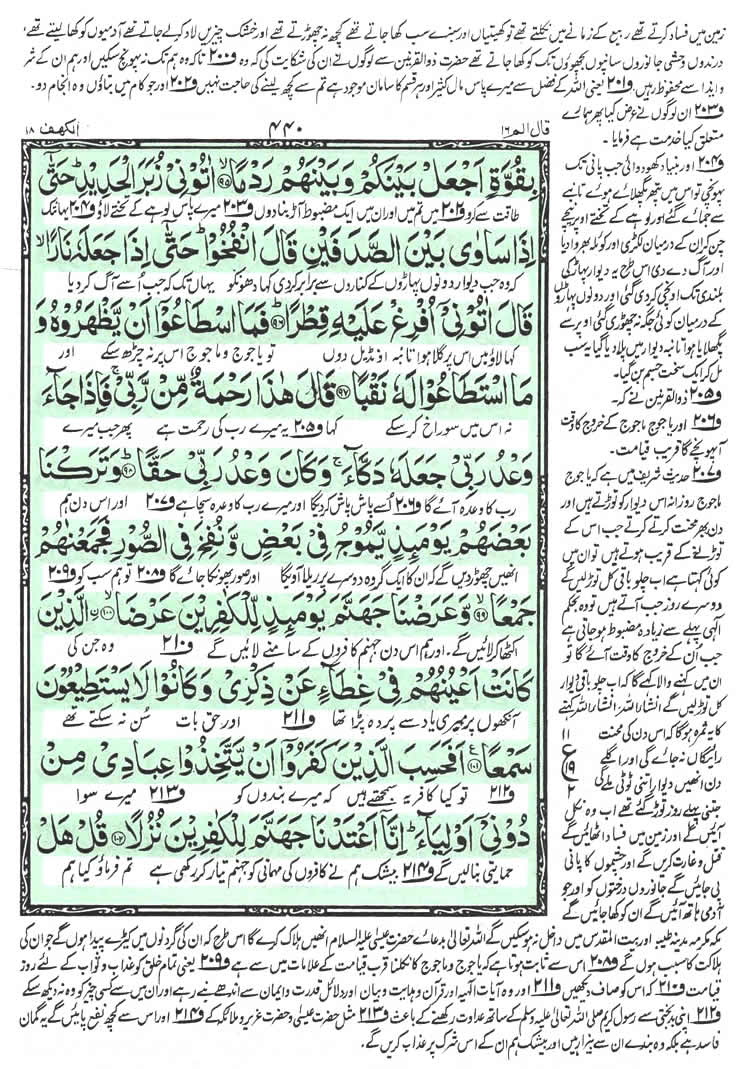 زمین میں فساد کرتے تھے ربیع کے زمانے میں نکلتے تھے تو کھیتیاں اور سبزے سب کھا جاتے تھے کچھ نہ چھوڑتے تھے اور خشک چیزیں لاد کر لے جاتے تھے آدمیوں کو کھا لیتے تھے،
درندوں وحشی جانوروں سانپوں بچھوؤں تک کو کھا جاتے تھے حضرت ذوالقرنین سے لوگوں نے ان کی شکایت کی کہ وہ ف۲۰۰ تاکہ وہ ہم تک نہ پہونچ سکیں اور ہم ان کے شر
و ایذا سے محفوظ رہیں، ف۲۰۱ یعنی اللہ کے فضل سے میرے پاس مال کثیر اور ہر قسم کا سامان موجود ہے تم سے کچھ لینے کی حاجت نہیں ف۲۰۲ اور جو کام میں بتاؤں وہ انجام دو۔
قال الم ۱۶
۴۴۰
الکهف ۱۸
بِقُوَّةٍ اَجْعَلْ بَیْنَكُمْ وَبَیْنَهُمْ رَدْمًا ۹۵ اٰتُوْنِیْ زُبَرَ الْحَدِیْدِ حَتّٰۤی
طاقت سے کرو ف۲۰۲ میں تم میں اور ان میں ایک مضبوط آڑ بنا دوں ف۲۰۳ میرے پاس لوہے کے تختے لاؤ ف۲۰۴ یہانتک
اِذَا سَاوٰی بَیْنَ الصَّدَفَیْنِ قَالَ انْفُخُوْا حَتّٰۤی اِذَا جَعَلَهٗ نَارًا
کہ وہ جب دیوار دونوں پہاڑوں کے کناروں سے برابر کر دی کہا دھونکو یہاں تک کہ جب اُسے آگ کر دیا
قَالَ اٰتُوْنِیْۤ اُفْرِغْ عَلَیْهِ قِطْرًا ۹۶ فَمَا اسْطَاعُوْۤا اَنْ یَّظْهَرُوْهُ وَ
کہا لاؤ میں اس پر گلا ہوا تانبہ اُنڈیل دوں تو یاجوج و ماجوج اس پر نہ چڑھ سکے اور
مَا اسْتَطَاعُوْا لَهٗ نَقْبًا ۹۷ قَالَ هٰذَا رَحْمَةٌ مِّنْ رَّبِّیْ فَاِذَا جَآءَ
نہ اس میں سوراخ کر سکے کہا ف۲۰۵ یہ میرے رب کی رحمت ہے پھر جب میرے
وَعْدُ رَبِّیْ جَعَلَهٗ دَكَّآءَ وَكَانَ وَعْدُ رَبِّیْ حَقًّا ۹۸ وَتَرَكْنَا
رب کا وعدہ آئے گا ف۲۰۶ اُسے پاش پاش کر دیگا اور میرے رب کا وعدہ سچا ہے ف۲۰۷ اور اس دن ہم
بَعْضَهُمْ یَوْمَىِٕذٍ یَّمُوْجُ فِیْ بَعْضٍ وَّنُفِخَ فِی الصُّوْرِ فَجَمَعْنٰهُمْ
انھیں چھوڑ دیں گے کہ ان کا ایک گروہ دوسرے پر ریلا آویگا اور صور پھونکا جائے گا ف۲۰۸ تو ہم سب کو ف۲۰۹
جَمْعًا ۹۹ وَّعَرَضْنَا جَهَنَّمَ یَوْمَىِٕذٍ لِّلْكٰفِرِیْنَ عَرْضًا ۱۰۰ الَّذِیْنَ
اکٹھا کر لائیں گے۔ اور ہم اس دن جہنم کافروں کے سامنے لائیں گے ف۲۱۰ وہ جن کی
كَانَتْ اَعْیُنُهُمْ فِیْ غِطَآءٍ عَنْ ذِكْرِیْ وَكَانُوْا لَا یَسْتَطِیْعُوْنَ
آنکھوں پر میری یاد سے پردہ پڑا تھا ف۲۱۱ اور حق بات سُن نہ سکتے تھے
سَمْعًا ۱۰۱ اَفَحَسِبَ الَّذِیْنَ كَفَرُوْۤا اَنْ یَّتَّخِذُوْا عِبَادِیْ مِنْ
ف۲۱۲ تو کیا کافر یہ سمجھتے ہیں کہ میرے بندوں کو ف۲۱۳ میرے سوا
دُوْنِیْۤ اَوْلِیَآءَ اِنَّاۤ اَعْتَدْنَا جَهَنَّمَ لِلْكٰفِرِیْنَ نُزُلًا ۱۰۲ قُلْ هَلْ
حمایتی بنا لیں گے ف۲۱۴ بیشک ہم نے کافروں کی مہمانی کو جہنم تیار کر رکھی ہے تم فرماؤ کیا ہم
ف۲۰۳ ان لوگوں نے عرض کیا پھر ہمارے
متعلق کیا خدمت ہے فرمایا۔
ف۲۰۴ اور بنیاد کھودوائی جب پانی تک
پہونچی تو اس میں پتھر پگھلائے ہوئے تانبے
سے جمائے گئے اور لوہے کے تختے اوپر نیچے
چن کر ان کے درمیان لکڑی اور کوئلہ بھروا دیا
اور آگ دے دی اس طرح یہ دیوار پہاڑ کی
بلندی تک اونچی کر دی گئی اور دونوں پہاڑوں
کے درمیان کوئی جگہ نہ چھوڑی گئی اوپر سے
پگھلایا ہوا تانبہ دیوار میں پلا دیا گیا یہ سب
مل کر ایک سخت جسم بن گیا۔
ف۲۰۵ ذوالقرنین نے کہ۔
ف۲۰۶ اور یاجوج ماجوج کے خروج کا وقت
آپہونچے گا قریب قیامت۔
ف۲۰۷ حدیث شریف میں ہے کہ یاجوج
ماجوج روزانہ اس دیوار کو توڑتے ہیں اور
دن بھر محنت کرتے کرتے جب اس کے
توڑنے کے قریب ہوتے ہیں تو ان میں
کوئی کہتا ہے اب چلو باقی کل توڑ لیں گے
دوسرے روز جب آتے ہیں تو وہ بحکم
الٰہی پہلے سے زیادہ مضبوط ہو جاتی ہے
جب اُن کے خروج کا وقت آئے گا تو
ان میں کہنے والا کہے گا کہ اب چلو باقی دیوار
کل توڑ لیں گے انشاء اللہ انشاء اللہ کہنے
کا یہ ثمرہ ہوگا کہ اس دن کی محنت
رائیگاں نہ جائے گی اور اگلے
دن انھیں دیوار اتنی ٹوٹی ملے گی
جتنی پہلے روز توڑ گئے تھے اب وہ نکل
آئیں گے اور زمین میں فساد اٹھائیں گے
قتل و غارت کریں گے اور چشموں کا پانی
پی جائیں گے جانوروں درختوں کو اور جو
آدمی ہاتھ آئیں گے ان کو کھا جائیں گے
۱۱
ع
۱۹
۲
مکہ مکرمہ مدینہ طیبہ اور بیت المقدس میں داخل نہ ہو سکیں گے اللہ تعالیٰ بدعائے حضرت عیسٰی علیہ السلام انھیں ہلاک کرے گا اس طرح کہ ان کی گردنوں میں کیڑے پیدا ہوں گے جو ان کی
ہلاکت کا سبب ہوں گے ف۲۰۸ اس سے ثابت ہوتا ہے کہ یاجوج و ماجوج کا نکلنا قرب قیامت کے علامات میں سے ہے ف۲۰۹ یعنی تمام خلق کو عذاب و ثواب کے لئے روز
قیامت ف۲۱۰ کہ اس کو صاف دیکھیں ف۲۱۱ اور وہ آیات الٰہیہ اور قرآن و ہدایت و بیان اور دلائل قدرت و ایمان سے اندھے بنے رہے اور ان میں سے کسی چیز کو وہ نہ دیکھ سکے
ف۲۱۲ اپنی بدبختی سے رسول کریم صلی اللہ تعالیٰ علیہ وسلم کے ساتھ عداوت رکھنے کے باعث ف۲۱۳ مثل حضرت عیسٰی و حضرت عزیر و ملائکہ کے ف۲۱۴ اور اس سے کچھ نفع پائیں گے یہ گمان
فاسد ہے بلکہ وہ بندے ان سے بیزار ہیں اور بیشک ہم ان کے اس شرک پر عذاب کریں گے۔